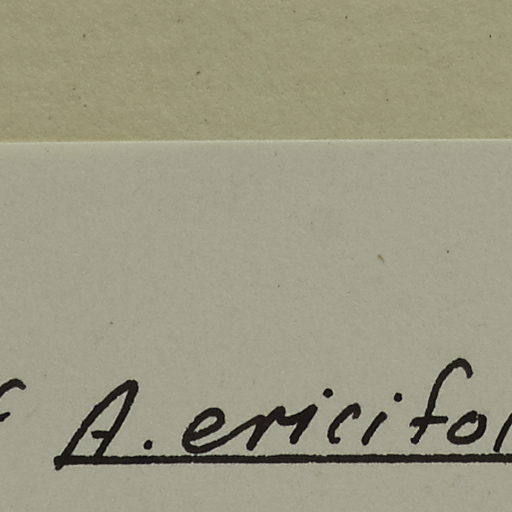 A. ericifol